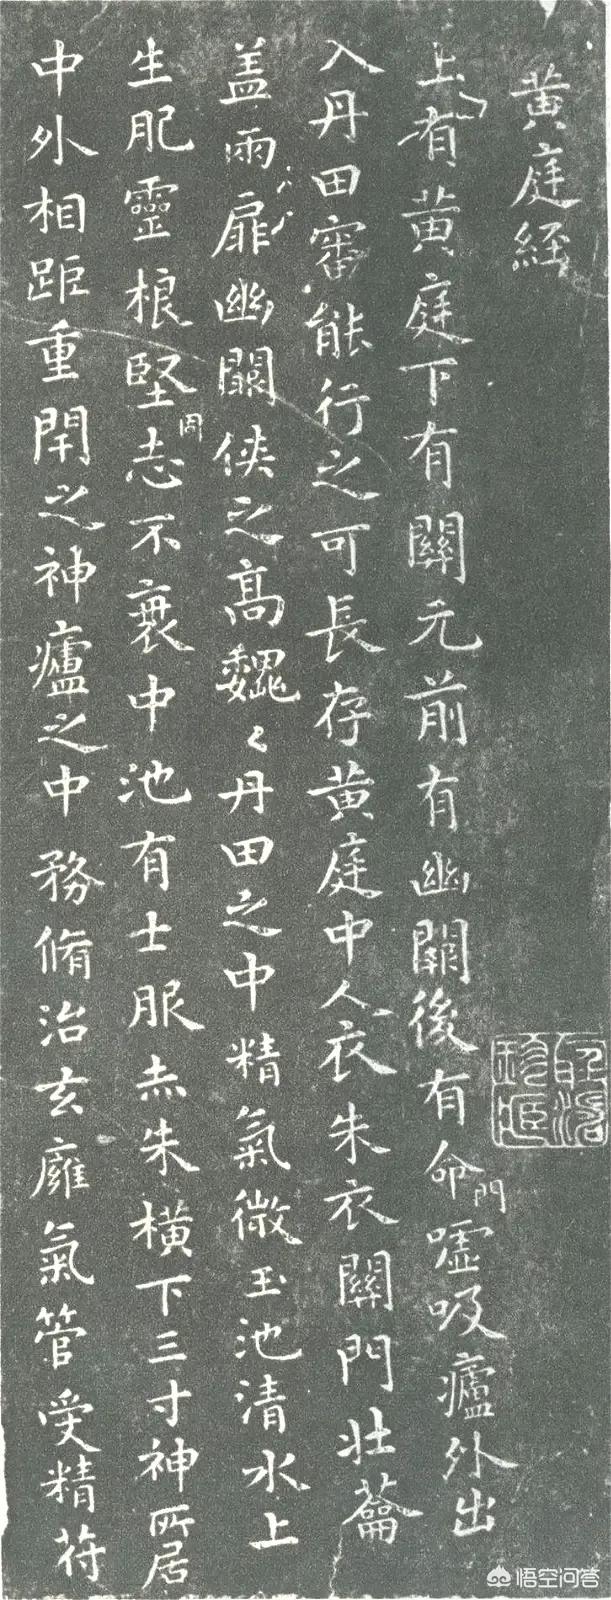 黄庭經
上有黄庭下有關元前有幽闕後有命門嘘吸廬外出
入丹田審能行之可長存黄庭中人衣朱衣關門壯蘥
盖兩扉幽闕俠之髙魏〻丹田之中精氣微玉池清水上
生肥靈根堅志不衰中池有士服赤朱横下三寸神所居
中外相距重閇之神廬之中務脩治玄廱氣管受精符
悟空问答